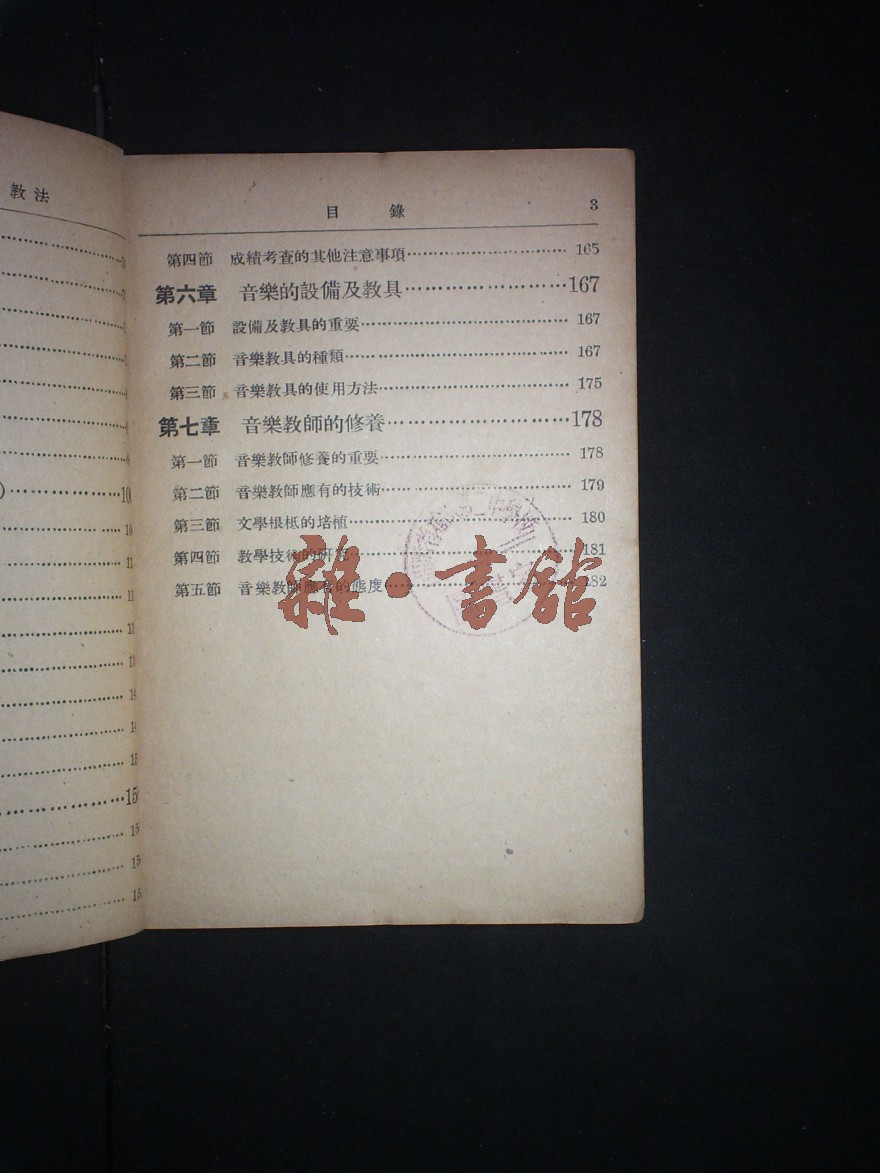 教法
目錄 3
第四節 成績考查的其他注意事項 165
第六章 音樂的設備及教具 167
第一節 設備及教具的重要 167
第二節 音樂教具的種類 167
第三節 音樂教具的使用方法 175
第七章 音樂教師的修養 178
第一節 音樂教師修養的重要 178
第二節 音樂教師應有的技術 179
第三節 文學根柢的培植 180
第四節 教學技術的研究 181
第五節 音樂教師應有的態度 182
雜·書館